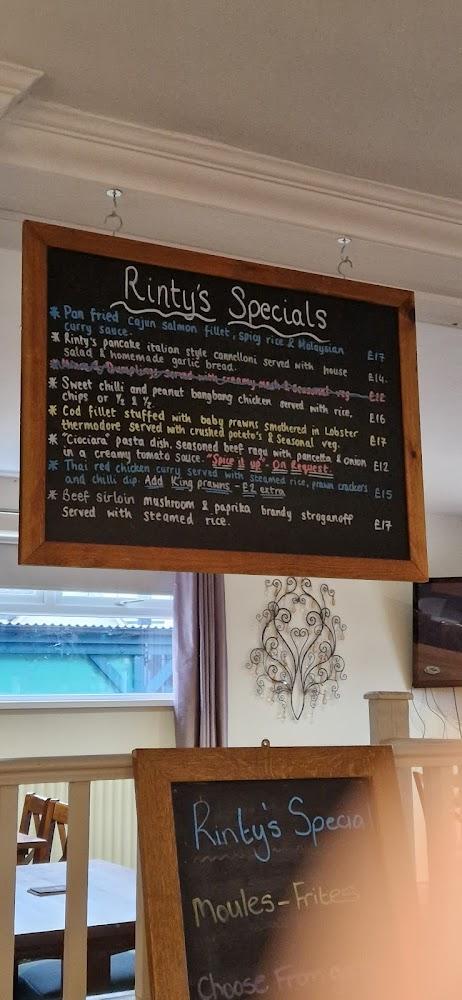 Rinty's Specials
* Pan fried cajun salmon fillet, spicy rice & Malaysian
curry sauce. £17
* Rinty's pancake italian style cannelloni served with house
salad & homemade garlic bread. £14.
* Mince & Dumplings served with creamy mash & seasonal veg £12
* Sweet chilli and peanut bangbang chicken served with rice,
chips or ½ & ½. £16
* Cod fillet stuffed with baby prawns smothered in Lobster
thermodore served with crushed potato's & Seasonal veg. £17
* "Ciociara" pasta dish, seasoned beef ragu with pancetta & onion
in a creamy tomato sauce. "Spice it up" - On Request. £12
* Thai red chicken curry served with steamed rice, prawn crackers
and chilli dip. Add King prawns - £2 extra £15
* Beef sirloin mushroom & paprika brandy stroganoff
served with steamed rice. £17
Rinty's Specia
Moules-Frites
Choose From